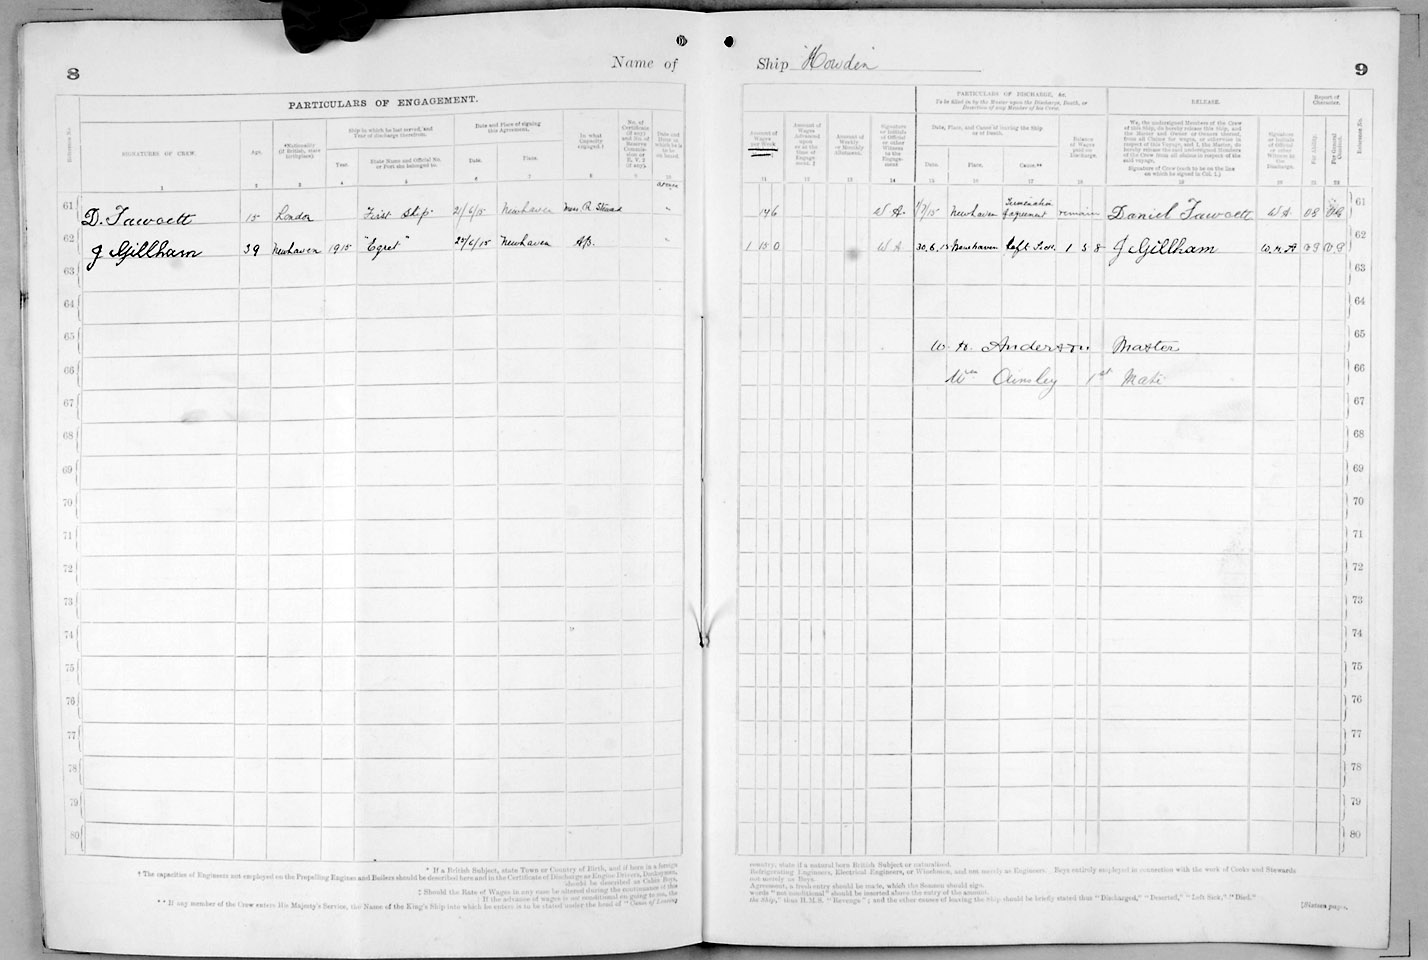 8
Name of
Ship "Howden"
9
PARTICULARS OF ENGAGEMENT.
Reference No.
SIGNATURES OF CREW.
Age.
*Nationality (if British, state birthplace)
Ship in which he last served, and Year of discharge therefrom.
Year.
State Name and Official No. or Port she belonged to.
Date and Place of signing this Agreement.
Date.
Place.
In what Capacity engaged †
1 2 3 4 5 6 7 8 9 10
PARTICULARS OF DISCHARGE, &c.
To be filled in by the Master upon the Discharge, Death, or Desertion of any Member of his Crew.
Date, Place, and Cause of leaving the Ship or of Death.
Date.
Place.
Cause.**
Balance of Wages paid on Discharge.
RELEASE.
Report of Character.
For Ability.
For General Conduct.
Reference No.
Amount of Wages per Week
Amount of Wages Advanced upon
Amount of Weekly or Monthly Allotment.
Signature or Initials of Official or other Witness to the Engagement
We, the undersigned Members of the Crew of this Ship, do hereby release this Ship, and the Master and Owner or Owners thereof, from all Claims for wages, or otherwise in respect of this Voyage, and I, the Master, do hereby release the said undersigned Members of the Crew from all claims in respect of the said voyage.
Signature of Crew (each to be on the line on which he signed in Col. 1.)
Signature or initials of Official or other Witness to the Discharge.
11 12 13 14 15 16 17 18 19 20 21 22
61 D. Fawcett 15 London First Ship 21/6/15 Newhaven Mess R. Steward " 17 6 W A. 1/7/15 Newhaven Termination of agreement remains Daniel Fawcett W A 61
62 J Gillham 39 Newhaven 1915 "Egret" 22/6/15 Newhaven AB. " 1 15 0 W A 30.6.15 Newhaven Left Sick. 1 5 8 J Gillham W.H.A VG VG 62
63 63
64 64
65 W. H. Anderson Master 65
66 Wm Ainsley 1st Mate 66
67 67
68 68
69 69
70 70
71 71
72 72
73 73
74 74
75 75
76 76
77 77
78 78
79 79
80 80
* If a British Subject, state Town or Country of Birth, and if born in a foreign
country, state if a natural born British Subject or naturalised.
† The capacities of Engineers not employed on the Propelling Engines and Boilers should be described here and in the Certificate of Discharge as Engine Drivers, Donkeymen,
Refrigerating Engineers, Electrical Engineers, or Winchmen, and not merely as Engineers. Boys entirely employed in connection with the work of Cooks and Stewards
should be described as Cabin Boys,
not merely as Boys.
‡ Should the Rate of Wages in any case be altered during the continuance of this
Agreement, a fresh entry should be made, which the Seamen should sign.
‖ If the advance of wages is not conditional on going to sea, the
words "not conditional" should be inserted above the entry of the amount.
** If any member of the Crew enters His Majesty's Service, the Name of the King's Ship into which he enters is to be stated under the head of "Cause of Leaving
the Ship," thus H.M.S. "Revenge"; and the other causes of leaving the Ship should be briefly stated thus "Discharged," "Deserted," "Left Sick," "Died."
[Sixteen pages.